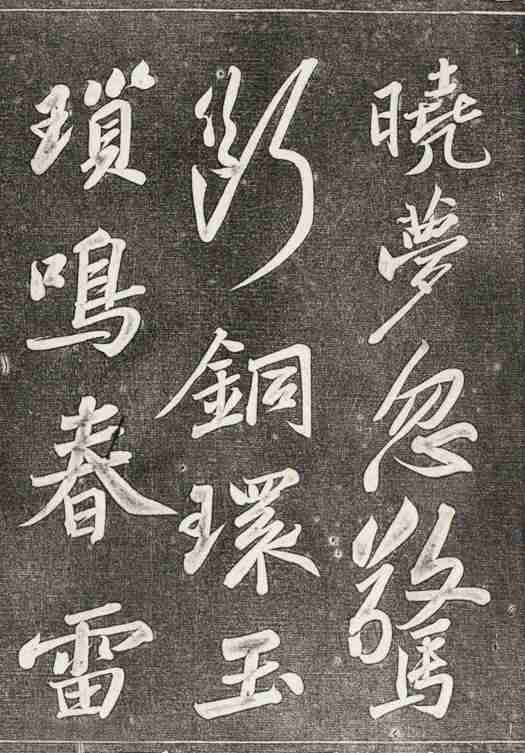 曉夢忽驚
断銅環玉
瑣鳴春雷